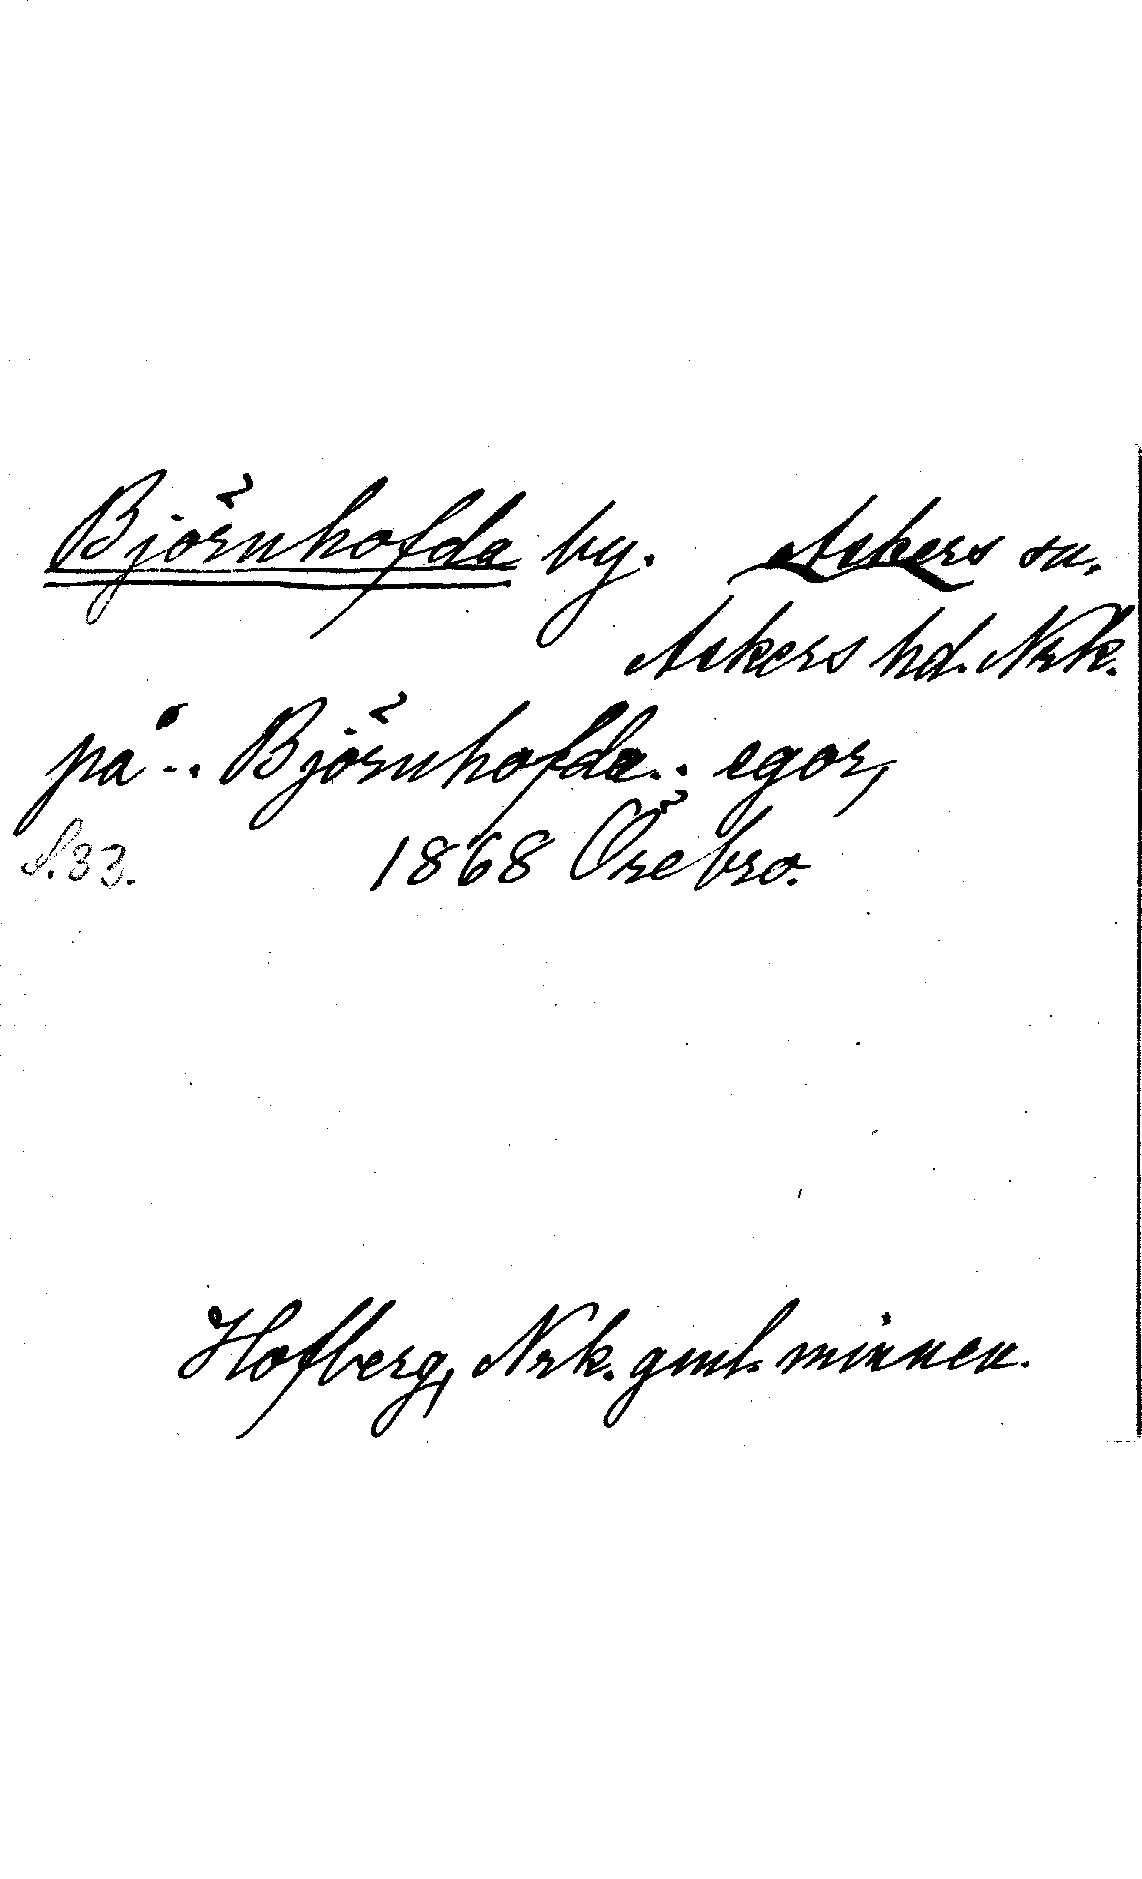 Björnhofda by. Askers sn.
Askers hd. Nrk.
på .. Björnhofda .. egor,
S. 33. 1868 Örebro.
Hofberg, Nrk. gml. minnen.